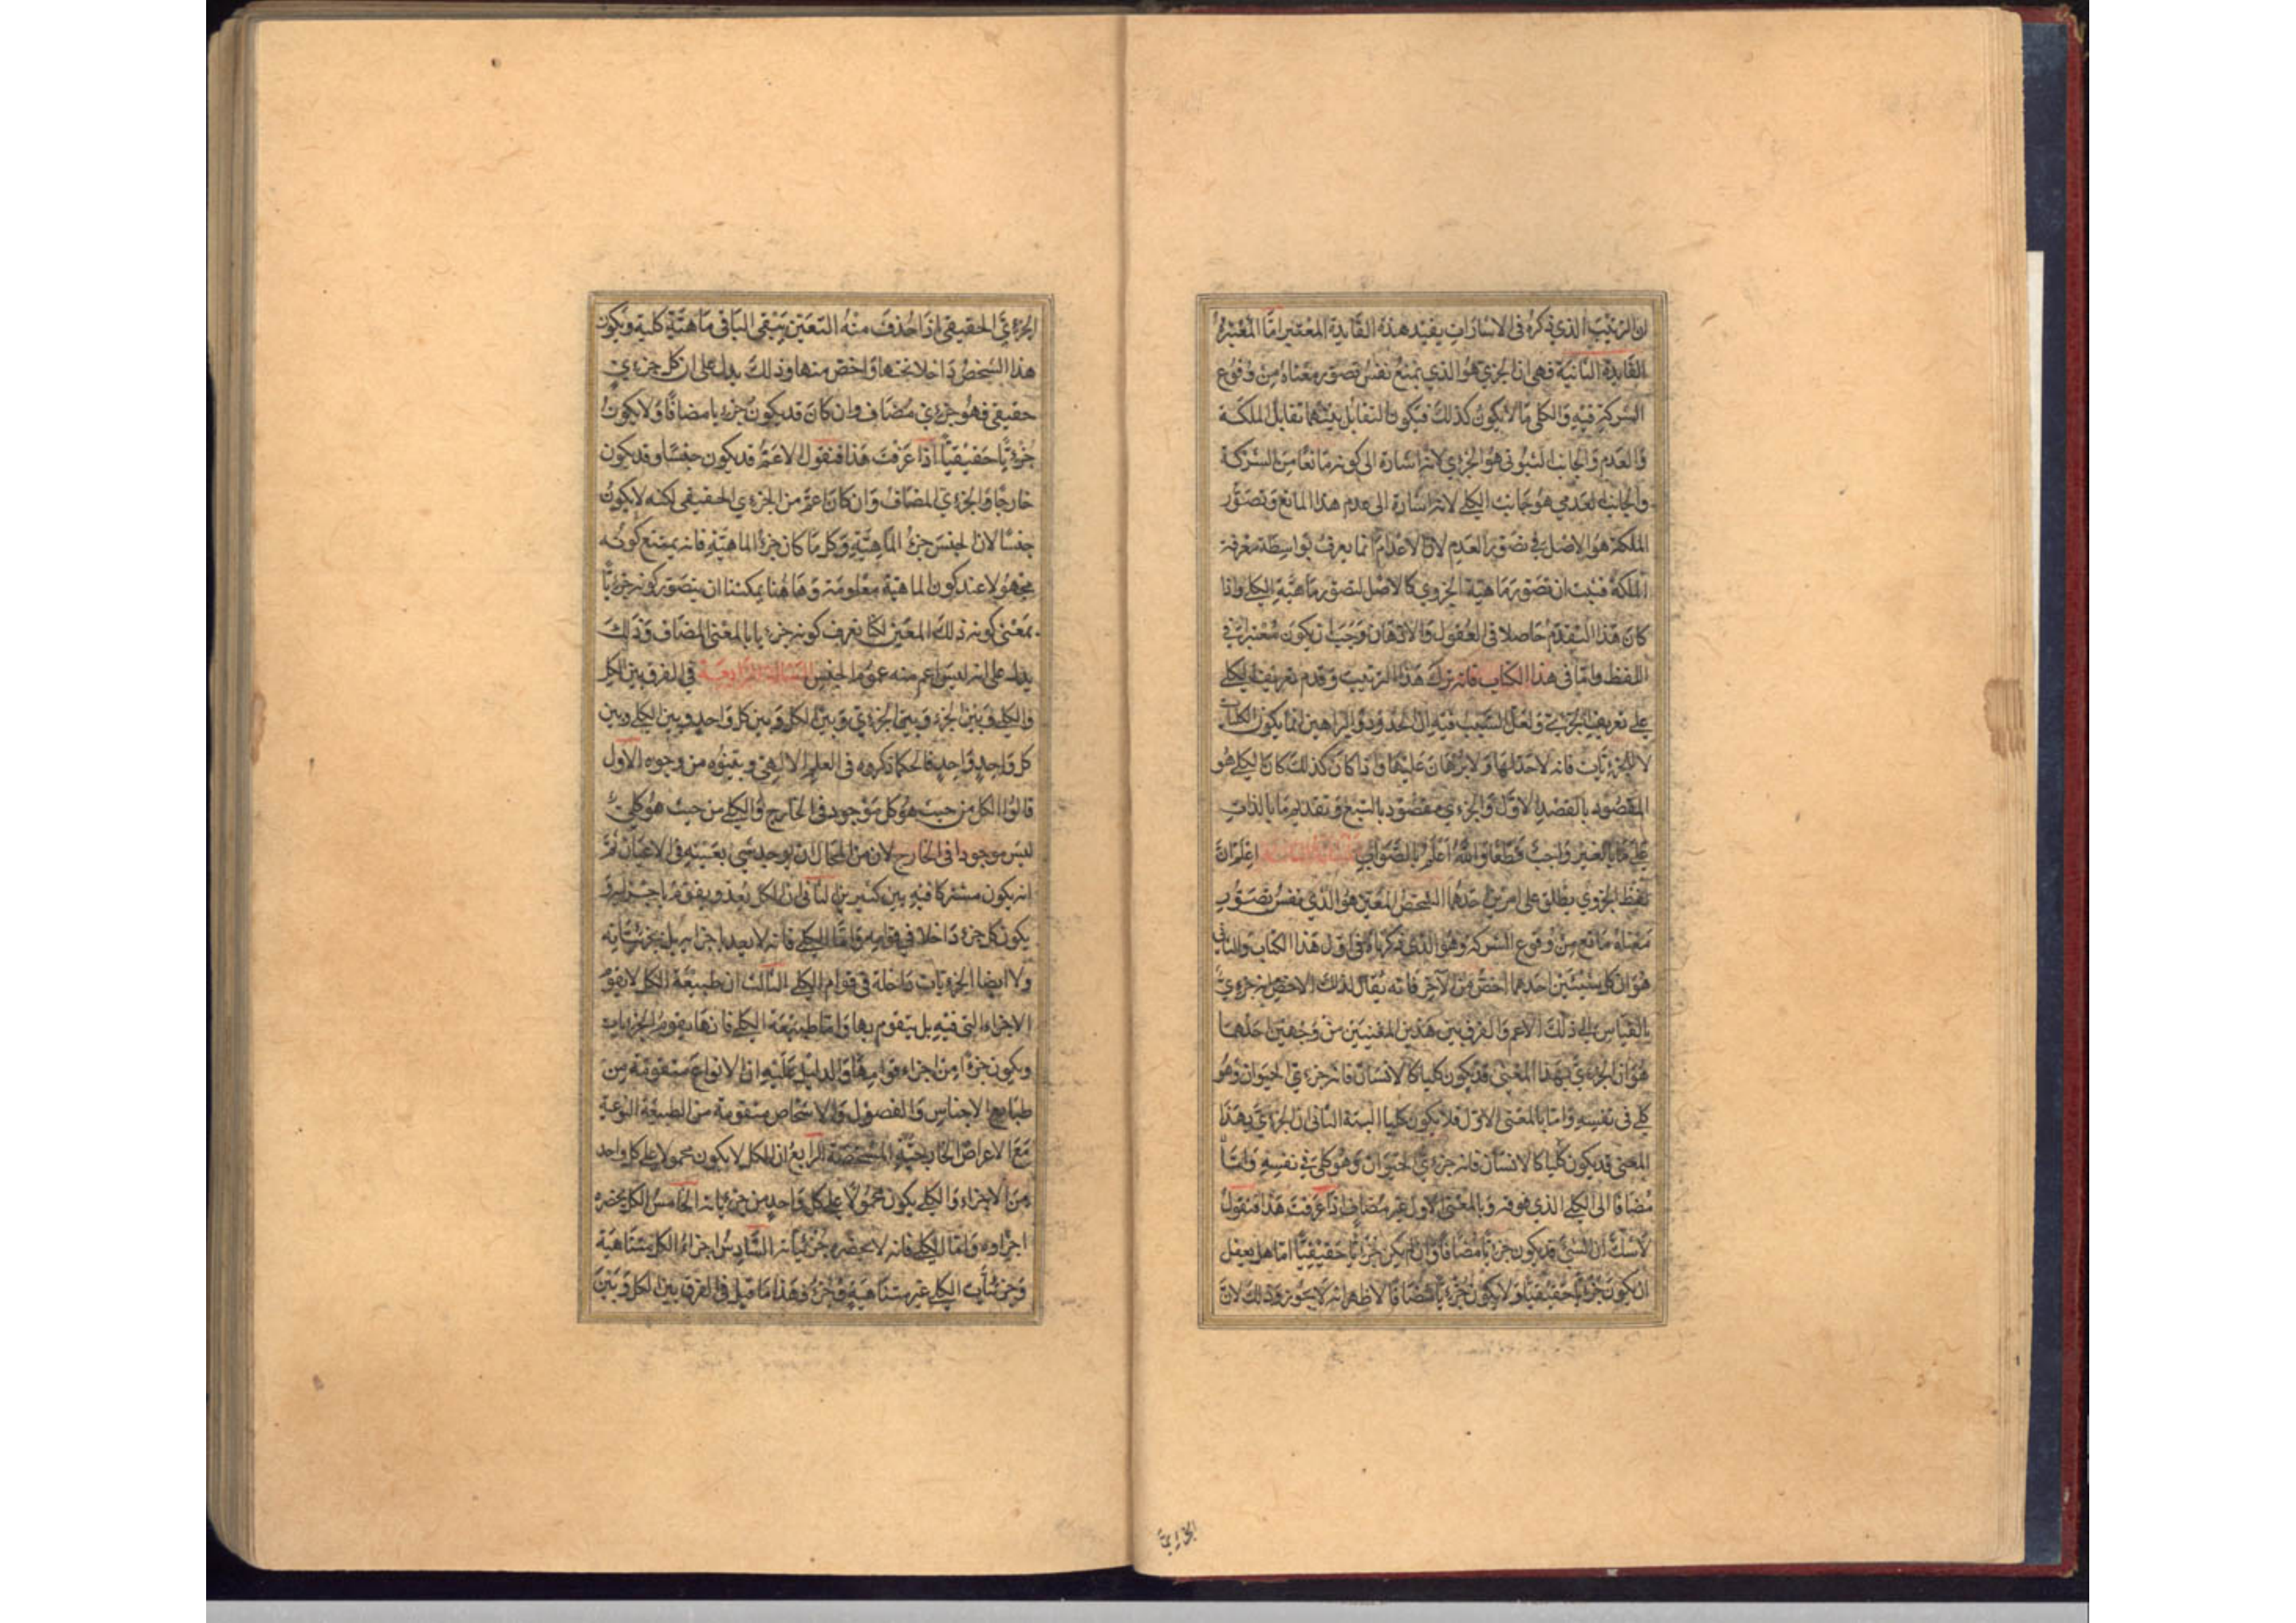 ان الترتيب الذي ذكره في الاشارات يفيد هذه الفايدة المعتبر اما المعتبر
الفايدة الثانية فهي ان الجزي هو الذي يمنع نفس تصور معناه من وقوع
الشركة فيه والكلي ما لا يكون كذلك فيكون التقابل بينهما تقابل الملكة
والعدم والجانب الثبوتي هو الجزي لانه اشارة الى كونه مانعا من الشركة
والجانب العدمي هو جانب الكلي لانه اشارة الى عدم هذا المانع وتصور
الملكة هو الاصل في تصور العدم لان الاعدام انما يعرف بواسطة معرفة
الملكة فثبت ان تصور ماهية الجزوي كالاصل لتصور ماهية الكلي واذا
كان هذا التقدم حاصلا في العقول والاذهان وجب ان يكون معتبرا في
اللفظ واما في هذا الكتاب فانه ترك هذا الترتيب وقدم تعريف الكلي
على تعريف الجزئي ولعل السبب فيه ان الحدود والبراهين انما يكون للكليات
لا للجزئيات فانه لا حد لها ولا برهان عليها واذا كان كذلك كان الكلي هو
المقصود بالقصد الاول والجزءي مقصود بالتبع وتقديم ما بالذات
على ما بالغير واجب قطعا والله اعلم بالصواب المسئلة الثالثة اعلم ان
لفظ الجزوي يطلق على امرين احدهما الشخص المعين هو الذي نفس تصور
معناه مانع من وقوع الشركة وهو الذي ذكرناه في اول هذا الكتاب والثاني
هو ان كل شيئين احدهما اخص من الآخر فانه يقال لذلك الاخص انه جزءي
بالقياس الى ذلك الاعم والفرق بين هذين المعنيين من وجهين احدهما
هو ان الجزءي بهذا المعنى قد يكون كليا كالانسان فانه جزءي الحيوان وهو
كلي في نفسه واما بالمعنى الاول فلا يكون كليا البتة الثاني ان الجزءي بهذا
المعنى قد يكون كليا كالانسان فانه جزءي الحيوان وهو كلي في نفسه واما
مضافا الى الكلي الذي فوقه وبالمعنى الاول غير مضاف اذا عرفت هذا فنقول
لا شك ان الشي قد يكون جزءيا مضافا وان لم يكن جزءيا حقيقيا اما هل يعقل
ان يكون جزءيا حقيقيا ولا يكون جزءيا مضافا لاظهر انه لا يجوز وذلك لان
الجزءي
الجزءي الحقيقي اذا حذف منه التعين يبقى الباقي ماهية كلية ويكون
هذا الشخص داخلا تحتها واخص منها وذلك يدل على ان كل جزءي
حقيقي فهو جزءي مضاف وان كان قد يكون جزءيا مضافا ولا يكون
جزءيا حقيقيا اذا عرفت هذا فنقول الاعم قد يكون جنسا وقد يكون
خارجا والجزءي المضاف وان كان اعم من الجزءي الحقيقي لكنه لا يكون
جنسا لان الجنس جزء الماهية وكل ما كان جزء الماهية فانه يمتنع كونه
مجهولا عند كون الماهية معلومة وهاهنا يمكننا ان نتصور كونه جزءيا
بمعنى كونه ذلك المعين لكنا نعرف كونه جزءيا بالمعنى المضاف وذلك
يدل على انه ليس اعم منه عموم الجنس المسئلة الرابعة في الفرق بين الكل
والكلي وبين الجزء وبين الجزءي وبين الكل وبين كل واحد وبين الكلي وبين
كل واحد واحد فالحكما ذكروه في العلم الالهي وبينوه من وجوه الاول
قالوا الكل من حيث هو كل موجود في الخارج والكلي من حيث هو كلي
ليس موجودا في الخارج لان من المحال ان يوجد شي بعينه في الاعيان ثم
انه يكون مشتركا فيه بين كثيرين الثاني ان الكل يعد ويقوم باجزايه و
يكون كل جزء داخلا في قوامه واما الكلي فانه لا يعد باجزايه بل بجزئياته
ولا ايضا الجزءيات داخلة في قوام الكلي الثالث ان طبيعة الكل لا تقوم
الاجزاء التي فيه بل يتقوم بها واما طبيعة الكلي فانها يقوم الجزءيات
ويكون جزءا من اجزاء قوامها والدليل عليه ان الانواع متقومة من
طبايع الاجناس والفصول والاشخاص متقومة من الطبيعة النوعية
مع الاعراض الخارجية المشخصة الرابع ان الكل لا يكون محمولا على كل واحد
من الاجزاء والكلي يكون محمولا على كل واحد من جزءياته الخامس الكل يحضره
اجزاوه واما الكلي فانه لا يحضره جزئياته السادس اجزاء الكل متناهية
وجزئيات الكلي غير متناهية فهذا ما قيل في الفرق بين الكل وبين